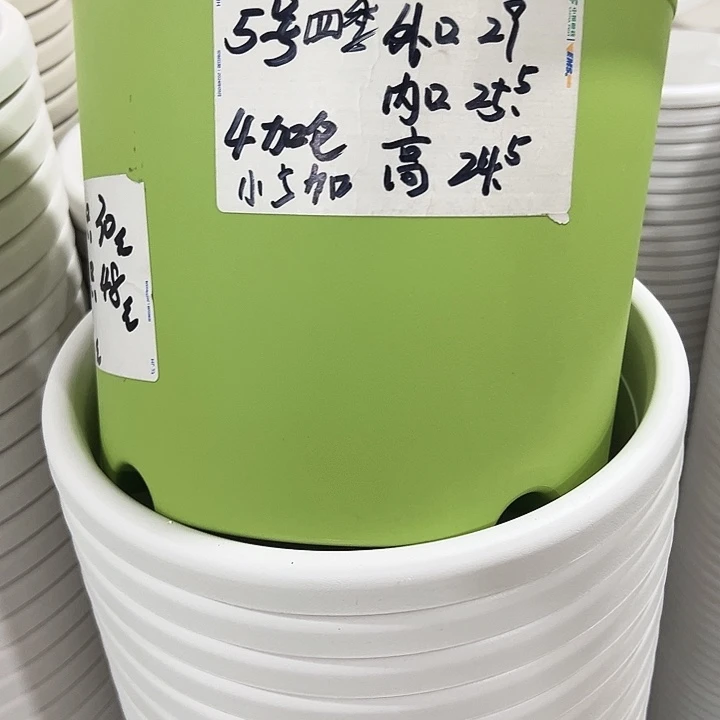 5号四季 外口 29
内口 25.5
4加仑 高 24.5
小5加
30元
48元
元
EMS